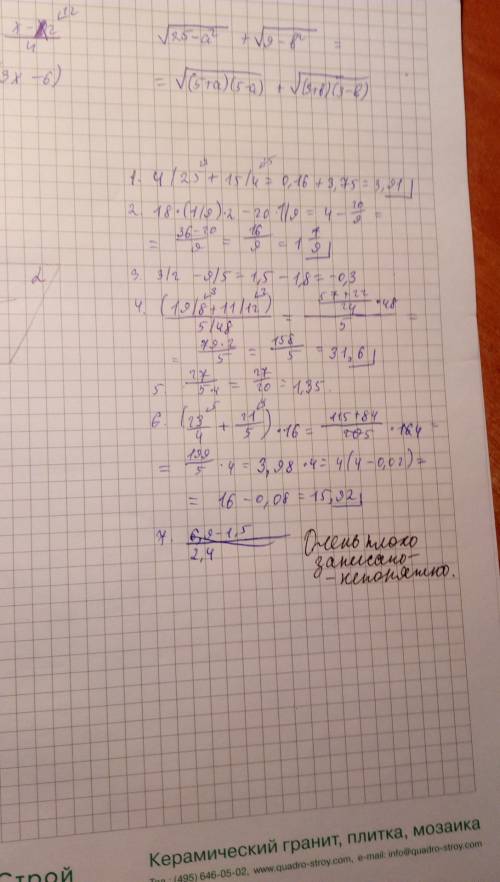 x-2
4
√25-a² + √9-b² =
3x-6)
= √(5+a)(5-a) + √(3+b)(3-b)
1. 4/25 + 15/4 = 0,16 + 3,75 = 3,91
2. 18·(1/9)·2 - 20·1/9 = 4 - 20/9 =
= 36-20/9 = 16/9 = 1 7/9
3. 3/2 - 9/5 = 1,5 - 1,8 = -0,3
4. (19/8 + 11/12)/5/48 = 57+22/24 ·48/5 =
= 79·2/5 = 158/5 = 31,6
5. 27/5·4 = 27/20 = 1,35
6. (23/4 + 21/5)·16 = 115+84/5 ·4 =
= 199/5 ·4 = 3,98·4 = 4(4-0,02) =
= 16 - 0,08 = 15,92
7. 6,9-1,5
2,4
Очень плохо
записано-
-непонятно.
2
Керамический гранит, плитка, мозаика
Строй
Тел.: (495) 646-05-02, www.quadro-stroy.com, e-mail: info@quadro-stroy.com